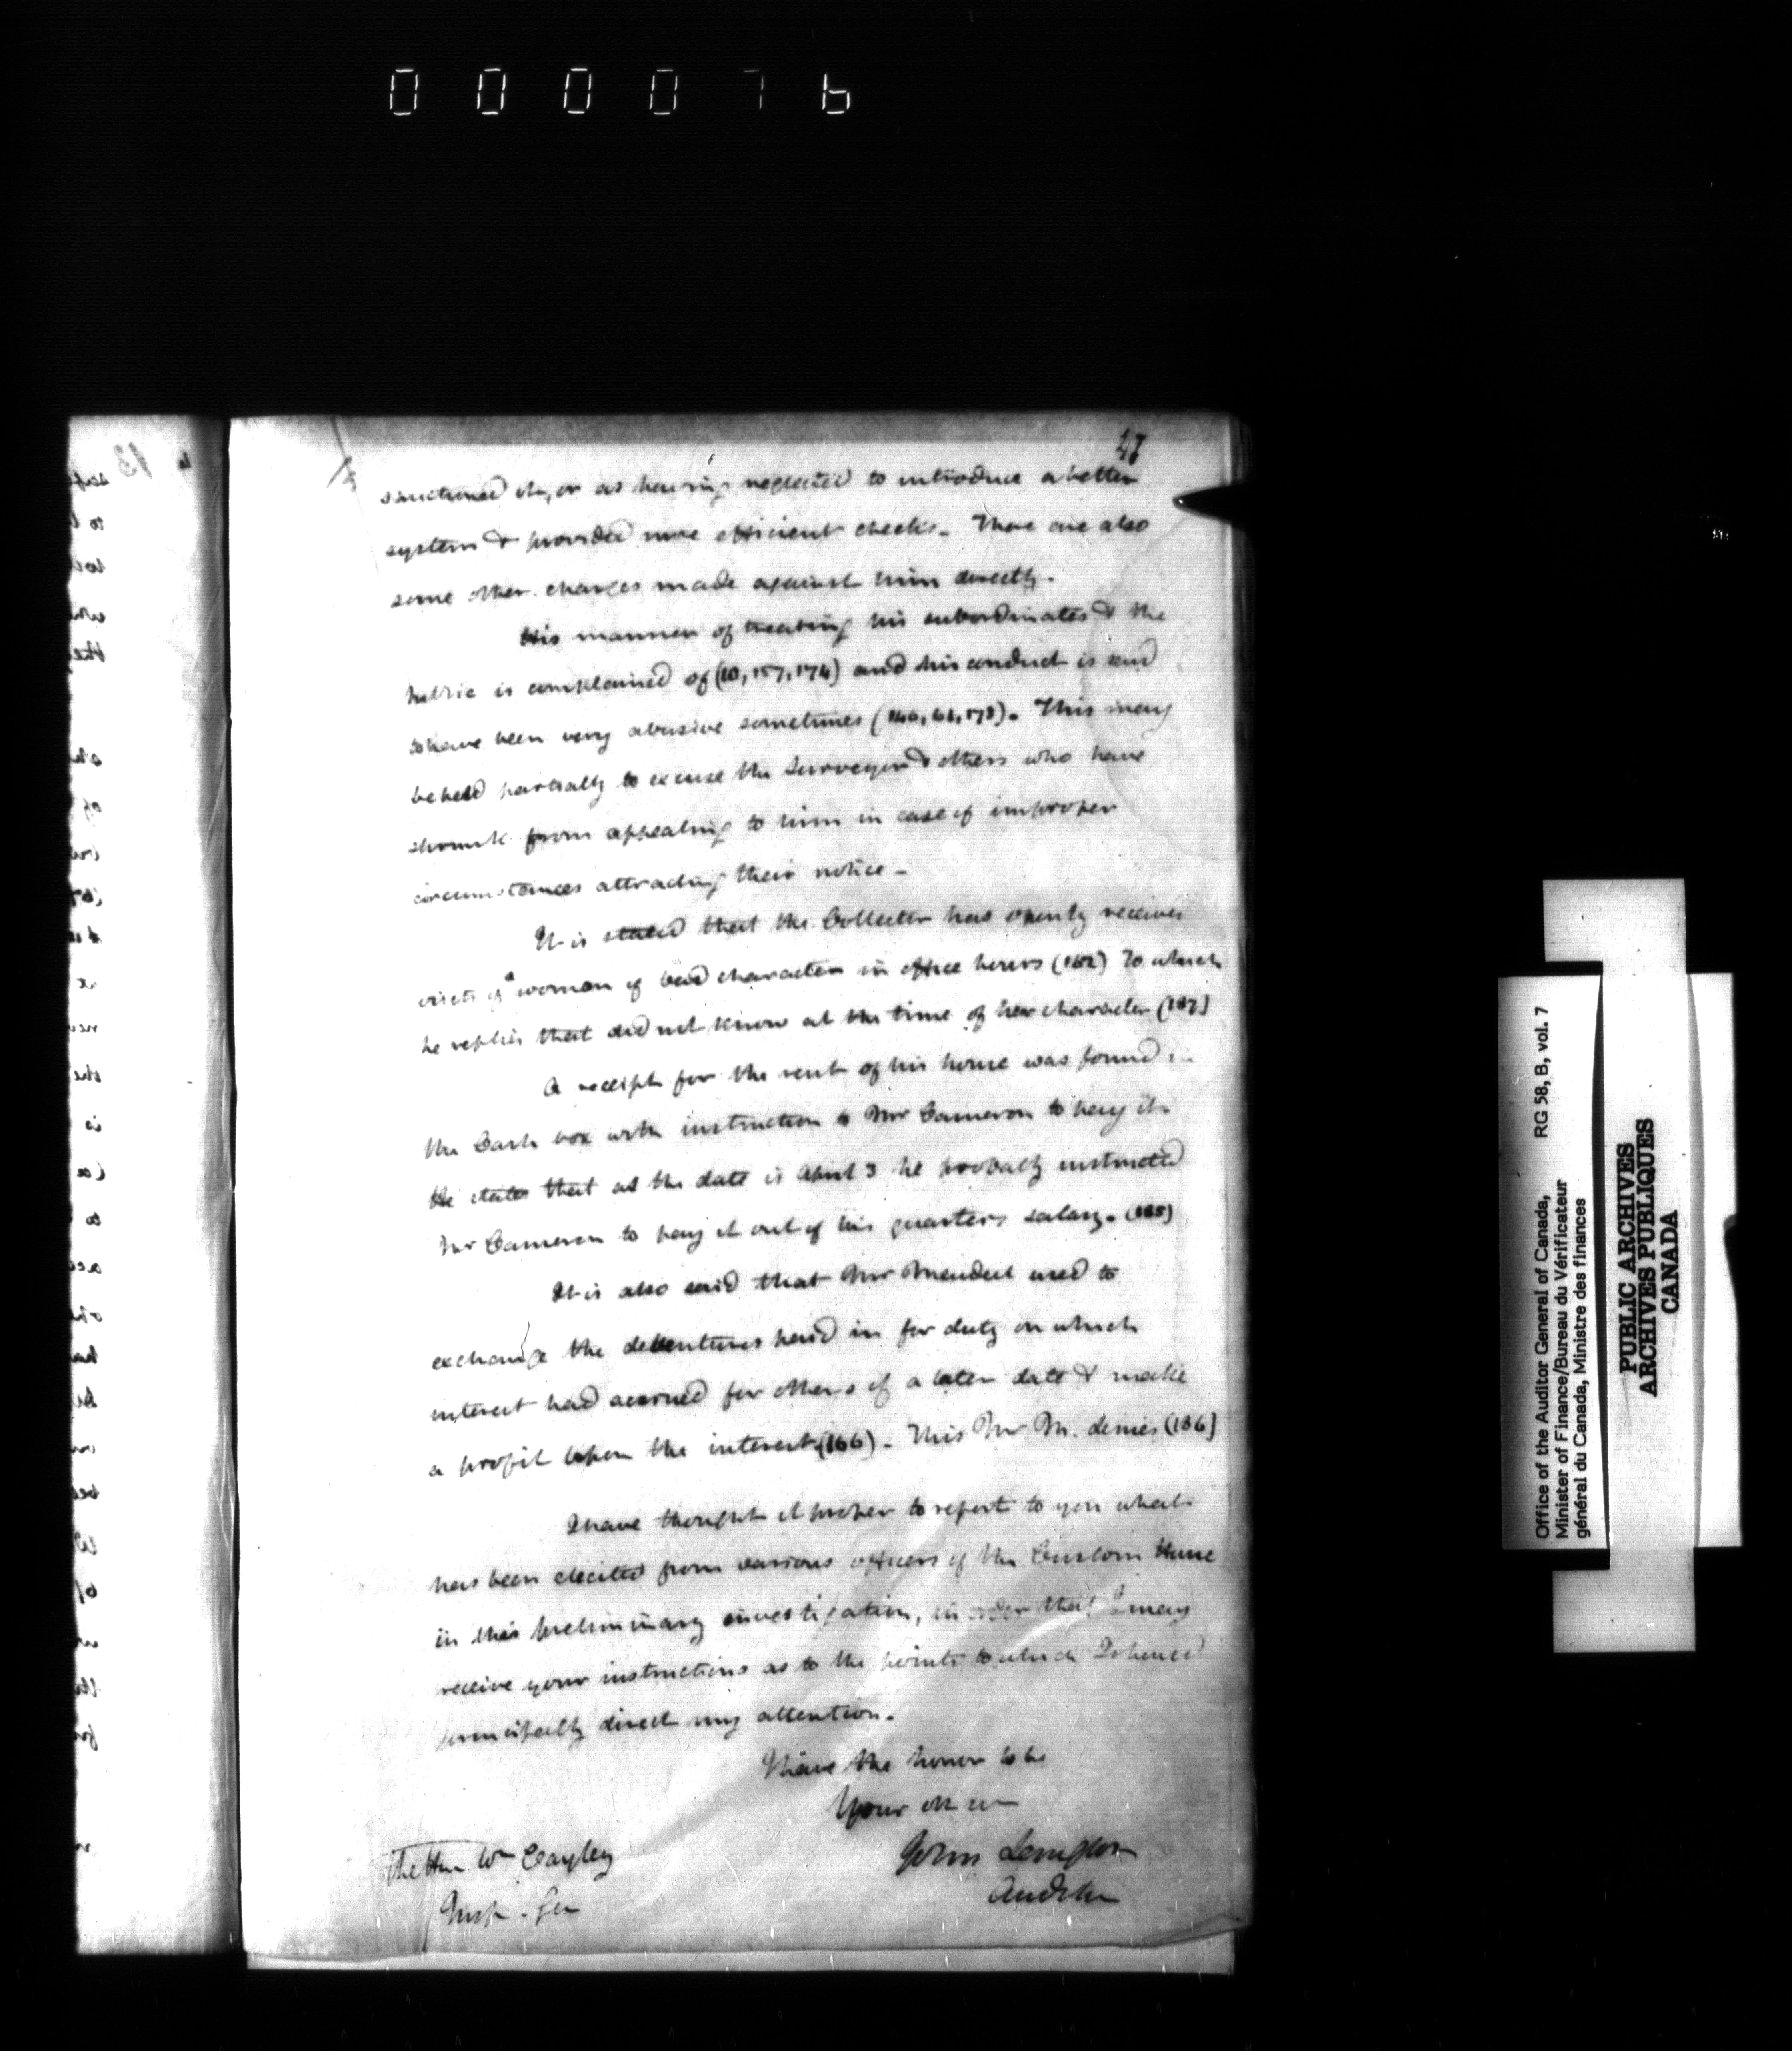 000076
47
sanctioned it, or as having neglected to introduce a better
system & provided more efficient checks. There are also
some other charges made against him directly.
His manner of treating his subordinates & the
public is complained of (10, 157, 174) and his conduct is said
to have been very abusive sometimes (160, 61, 173). This may
be held partially to excuse the Surveyor & others who have
shrunk from appealing to him in case of improper
circumstances attracting their notice -
It is stated that the Collector has openly received
visits of a woman of bad character in office hours (162) To which
he replies that did not know at the time of her character (187)
A receipt for the rent of his house was found in
the Cash box with instruction to Mr Cameron to pay it.
He states that as the date is April 3 he probably instructed
Mr Cameron to pay it out of his quarters salary. (185)
It is also said that Mr Meudell used to
exchange the debentures paid in for duty on which
interest had accrued for others of a later date & make
a profit upon the interest (166) - This Mr M. denies (186)
I have thought it proper to report to you what
has been elicited from various officers of the Custom House
in this preliminary investigation, in order that I may
receive your instructions as to the points to which I should
principally direct my attention.
I have the honor to be
Your
John Langton
Auditor
The Hon Wm Cayley
Insp. Gen
Office of the Auditor General of Canada, RG 58, B, vol. 7
Minister of Finance/Bureau du Vérificateur
général du Canada, Ministre des finances
PUBLIC ARCHIVES
ARCHIVES PUBLIQUES
CANADA